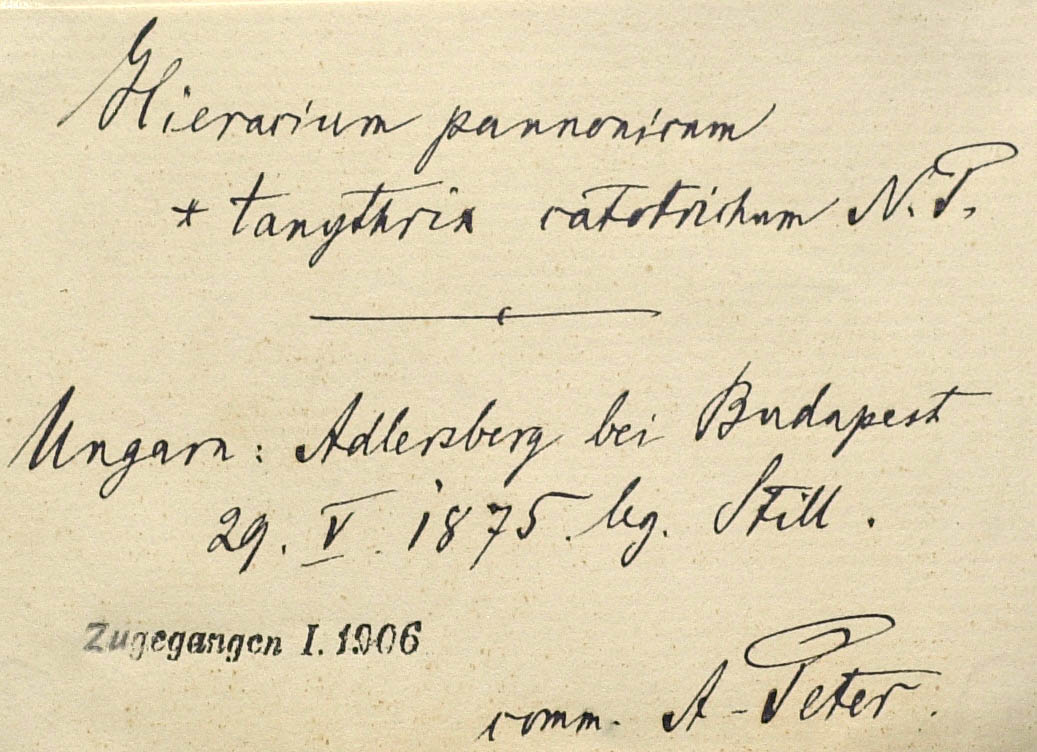 Hieracium pannonicum
* tanythrix catotrichum N. P.
Ungarn: Adlersberg bei Budapest
29. V. 1875. leg. Still.
Zugegangen I. 1906
comm. A. Peter.